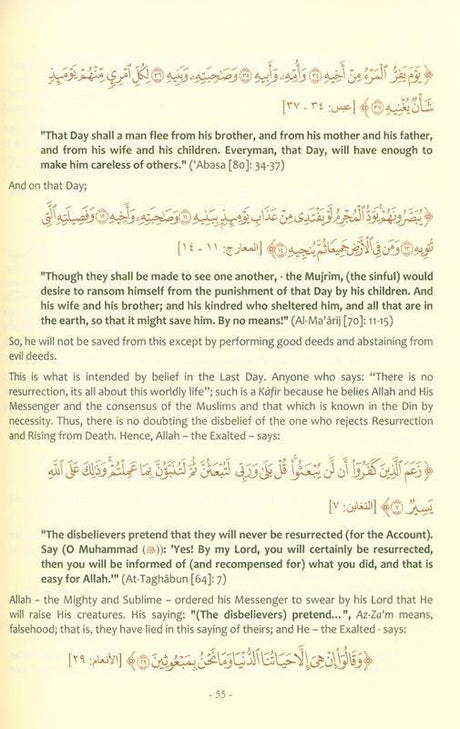 ﴿ يَوْمَ يَفِرُّ الْمَرْءُ مِنْ أَخِيهِ ۝٣٤ وَأُمِّهِ وَأَبِيهِ ۝٣٥ وَصَاحِبَتِهِ وَبَنِيهِ ۝٣٦ لِكُلِّ امْرِئٍ مِنْهُمْ يَوْمَئِذٍ
شَأْنٌ يُغْنِيهِ ۝٣٧ ﴾ [عبس: ٣٤ - ٣٧]
"That Day shall a man flee from his brother, and from his mother and his father,
and from his wife and his children. Everyman, that Day, will have enough to
make him careless of others." ('Abasa [80]: 34-37)
And on that Day;
﴿ يُبَصَّرُونَهُمْ يَوَدُّ الْمُجْرِمُ لَوْ يَفْتَدِي مِنْ عَذَابِ يَوْمِئِذٍ بِبَنِيهِ ۝١١ وَصَاحِبَتِهِ وَأَخِيهِ ۝١٢ وَفَصِيلَتِهِ الَّتِي
تُؤْوِيهِ ۝١٣ وَمَنْ فِي الْأَرْضِ جَمِيعًا ثُمَّ يُنْجِيهِ ۝١٤ ﴾ [المعارج: ١١ - ١٤]
"Though they shall be made to see one another, - the Mujrim, (the sinful) would
desire to ransom himself from the punishment of that Day by his children. And
his wife and his brother; and his kindred who sheltered him, and all that are in
the earth, so that it might save him. By no means!" (Al-Ma'ârij [70]: 11-15)
So, he will not be saved from this except by performing good deeds and abstaining from
evil deeds.
This is what is intended by belief in the Last Day. Anyone who says: "There is no
resurrection, its all about this worldly life"; such is a Kâfir because he belies Allah and His
Messenger and the consensus of the Muslims and that which is known in the Din by
necessity. Thus, there is no doubting the disbelief of the one who rejects Resurrection
and Rising from Death. Hence, Allah – the Exalted – says:
﴿ زَعَمَ الَّذِينَ كَفَرُوا أَنْ لَنْ يُبْعَثُوا قُلْ بَلَى وَرَبِّي لَتُبْعَثُنَّ ثُمَّ لَتُنَبَّؤُنَّ بِمَا عَمِلْتُمْ وَذَلِكَ عَلَى اللَّهِ
يَسِيرٌ ۝٧ ﴾ [التغابن: ٧]
"The disbelievers pretend that they will never be resurrected (for the Account).
Say (O Muhammad (ﷺ)): 'Yes! By my Lord, you will certainly be resurrected,
then you will be informed of (and recompensed for) what you did, and that is
easy for Allah.'" (At-Taghâbun [64]: 7)
Allah – the Mighty and Sublime – ordered his Messenger to swear by his Lord that He
will raise His creatures. His saying: "(The disbelievers) pretend...", Az-Za'm means,
falsehood; that is, they have lied in this saying of theirs; and He – the Exalted - says:
﴿ وَقَالُوا إِنْ هِيَ إِلَّا حَيَاتُنَا الدُّنْيَا وَمَا نَحْنُ بِمَبْعُوثِينَ ۝٢٩ ﴾ [الأنعام: ٢٩]
- 55 -